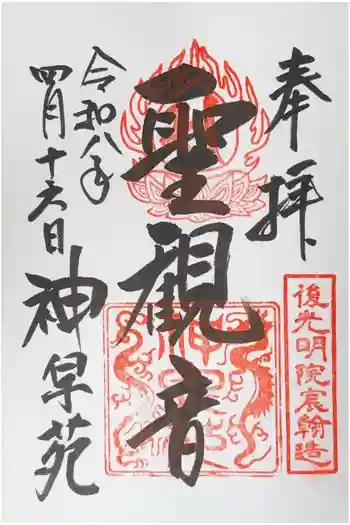 奉拝
後光明院宸翰造
聖観音
令和八年
四月十六日
神早苑